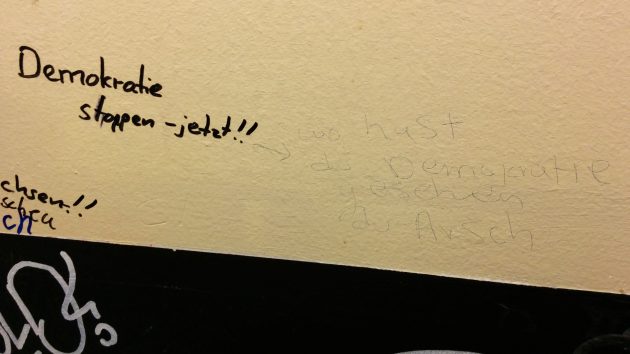 Demokratie
stoppen - jetzt!!
wo hast
du Demokratie
gesehen
du Arsch
chsen!!